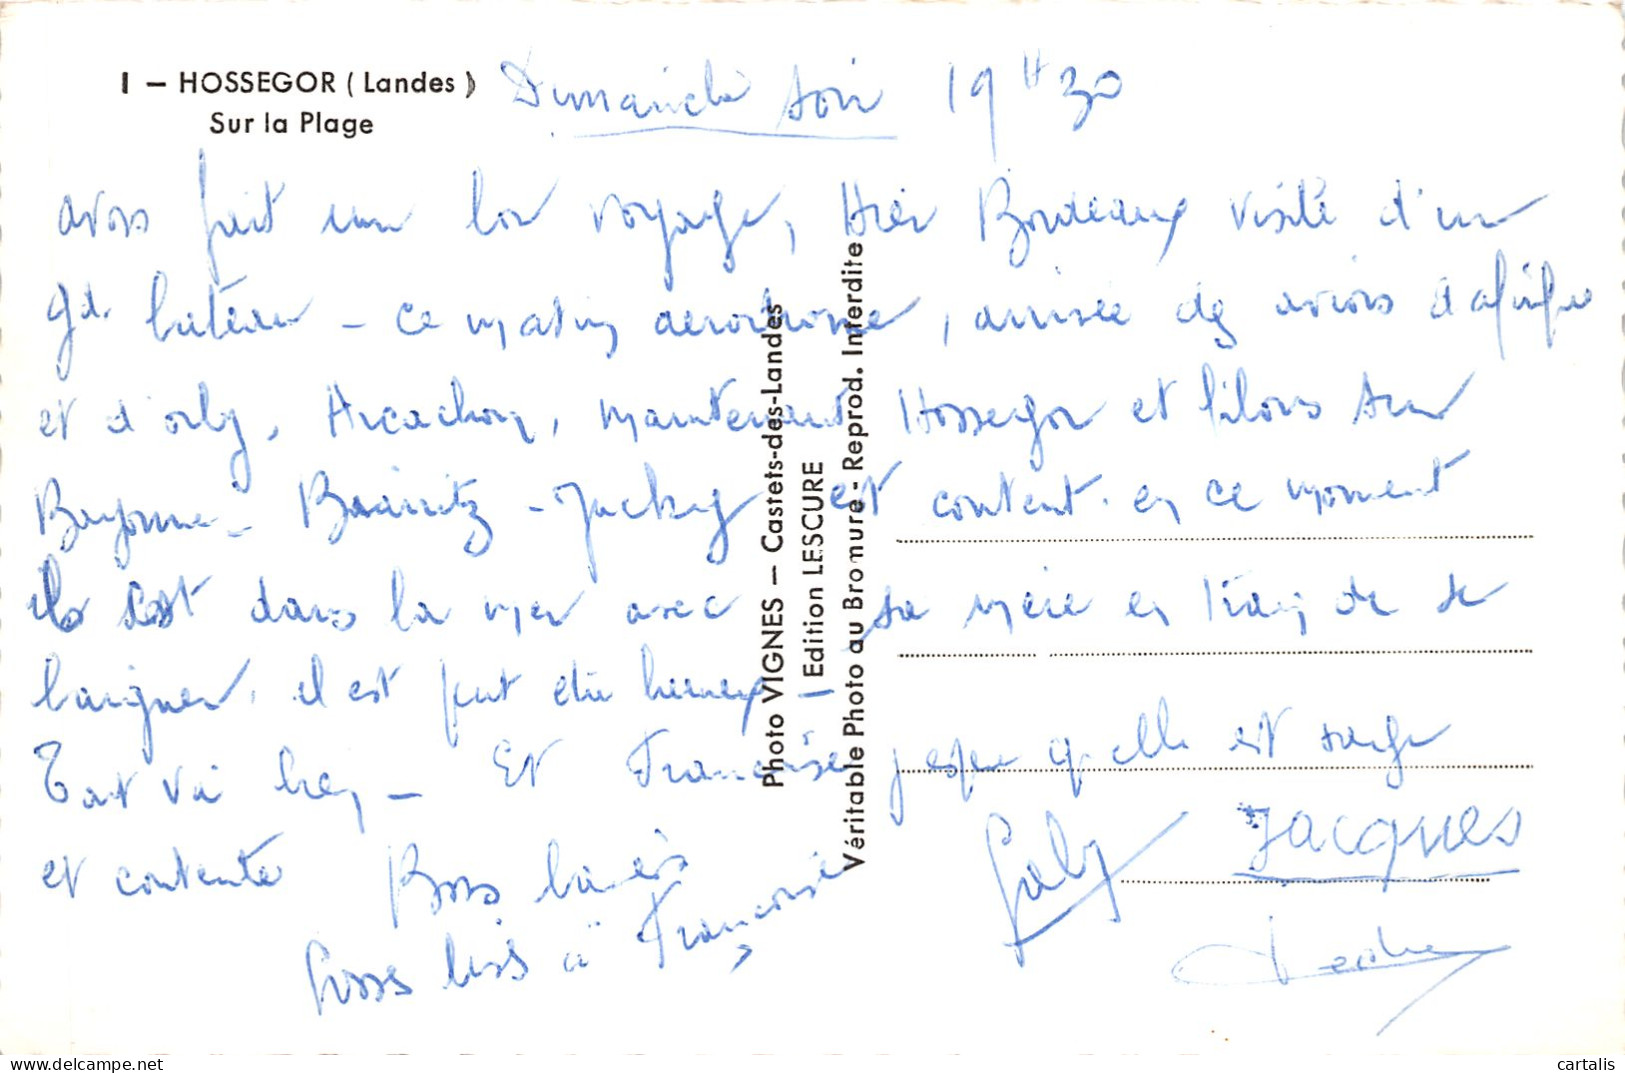 I — HOSSEGOR ( Landes )
Sur la Plage
Dimanche soir 19 H 30
avons fait un bon voyage, Hier Bordeaux visite d'un
gd. bateau - ce matin aerodrome, arrivée de avions d'afrique
et d'orly, Arcachon, maintenant Hossegor et filons sur
Bayonne - Biarritz - Jacky est content. en ce moment
il est dans la mer avec sa mère en train de se
baigner. il est fut être heureux -
Tout va bien - Et Françoise j'espère qu'elle est sage
et contente Bons baisers
Grosses bises à Françoise
Gaby Jacques
Photo VIGNES — Castets-des-Landes
Edition LESCURE
Véritable Photo au Bromure - Reprod. Interdite
cartalis